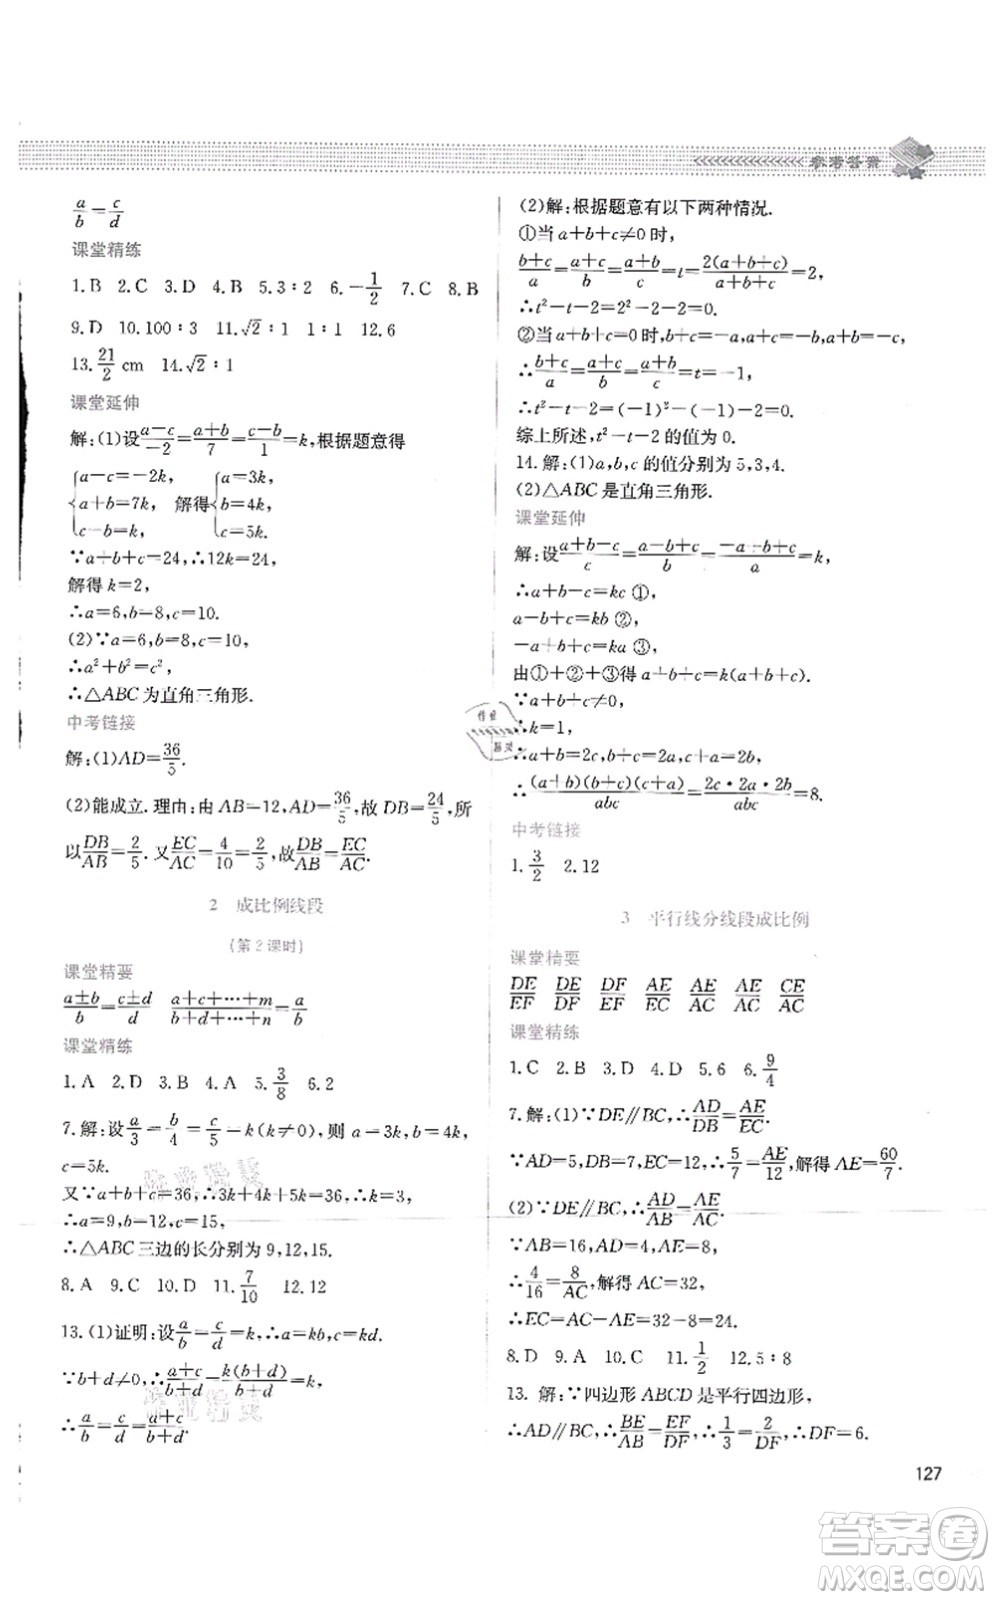 参考答案
a/b=c/d
课堂精练
1.B 2.C 3.D 4.B 5.3∶2 6.-1/2 7.C 8.B
9.D 10.100∶3 11.√2∶1 1∶1 12.6
13.21/2 cm 14.√2∶1
课堂延伸
解:(1)设(a-c)/-2=(a+b)/7=(c-b)/1=k,根据题意得
{a-c=-2k, a+b=7k, c-b=k, 解得{a=3k, b=4k, c=5k.
∵a+b+c=24,∴12k=24,
解得k=2,
∴a=6,b=8,c=10.
(2)∵a=6,b=8,c=10,
∴a²+b²=c²,
∴△ABC为直角三角形.
中考链接
解:(1)AD=36/5.
(2)能成立.理由:由AB=12,AD=36/5,故DB=24/5,所
以DB/AB=2/5.又EC/AC=4/10=2/5,故DB/AB=EC/AC.
2 成比例线段
(第2课时)
课堂精要
(a±b)/b=(c±d)/d (a+c+⋯+m)/(b+d+⋯+n)=a/b
课堂精练
1.A 2.D 3.B 4.A 5.3/8 6.2
7.解:设a/3=b/4=c/5=k(k≠0),则a=3k,b=4k,
c=5k.
又∵a+b+c=36,∴3k+4k+5k=36,∴k=3,
∴a=9,b=12,c=15,
∴△ABC三边的长分别为9,12,15.
8.A 9.C 10.D 11.7/10 12.12
13.(1)证明:设a/b=c/d=k,∴a=kb,c=kd.
∵b+d≠0,∴(a+c)/(b+d)=k(b+d)/(b+d)=k,
∴a/b=c/d=(a+c)/(b+d).
(2)解:根据题意有以下两种情况.
①当a+b+c≠0时,
(b+c)/a=(a+c)/b=(a+b)/c=t=2(a+b+c)/(a+b+c)=2,
∴t²-t-2=2²-2-2=0.
②当a+b+c=0时,b+c=-a,a+c=-b,a+b=-c,
∴(b+c)/a=(a+c)/b=(a+b)/c=t=-1,
∴t²-t-2=(-1)²-(-1)-2=0.
综上所述,t²-t-2的值为0.
14.解:(1)a,b,c的值分别为5,3,4.
(2)△ABC是直角三角形.
课堂延伸
解:设(a+b-c)/c=(a-b+c)/b=(-a+b+c)/a=k,
∴a+b-c=kc①,
a-b+c=kb②,
-a+b+c=ka③,
由①+②+③得a+b+c=k(a+b+c).
∵a+b+c≠0,
∴k=1,
∴a+b=2c,b+c=2a,c+a=2b,
∴(a+b)(b+c)(c+a)/abc=2c·2a·2b/abc=8.
中考链接
1.3/2 2.12
3 平行线分线段成比例
课堂精要
DE/EF DE/DF DF/EF AE/AC AE/EC AE/AC CE/AC
课堂精练
1.C 2.B 3.D 4.D 5.6 6.9/4
7.解:(1)∵DE∥BC,∴AD/DB=AE/EC.
∵AD=5,DB=7,EC=12,∴5/7=AE/12,解得AE=60/7.
(2)∵DE∥BC,∴AD/AB=AE/AC.
∵AB=16,AD=4,AE=8,
∴4/16=8/AC,解得AC=32,
∴EC=AC-AE=32-8=24.
8.D 9.A 10.C 11.1/2 12.5∶8
13.解:∵四边形ABCD是平行四边形,
∴AD∥BC,∴BE/AB=EF/DF,∴1/3=2/DF,∴DF=6.
127
答案卷
MXQE.COM